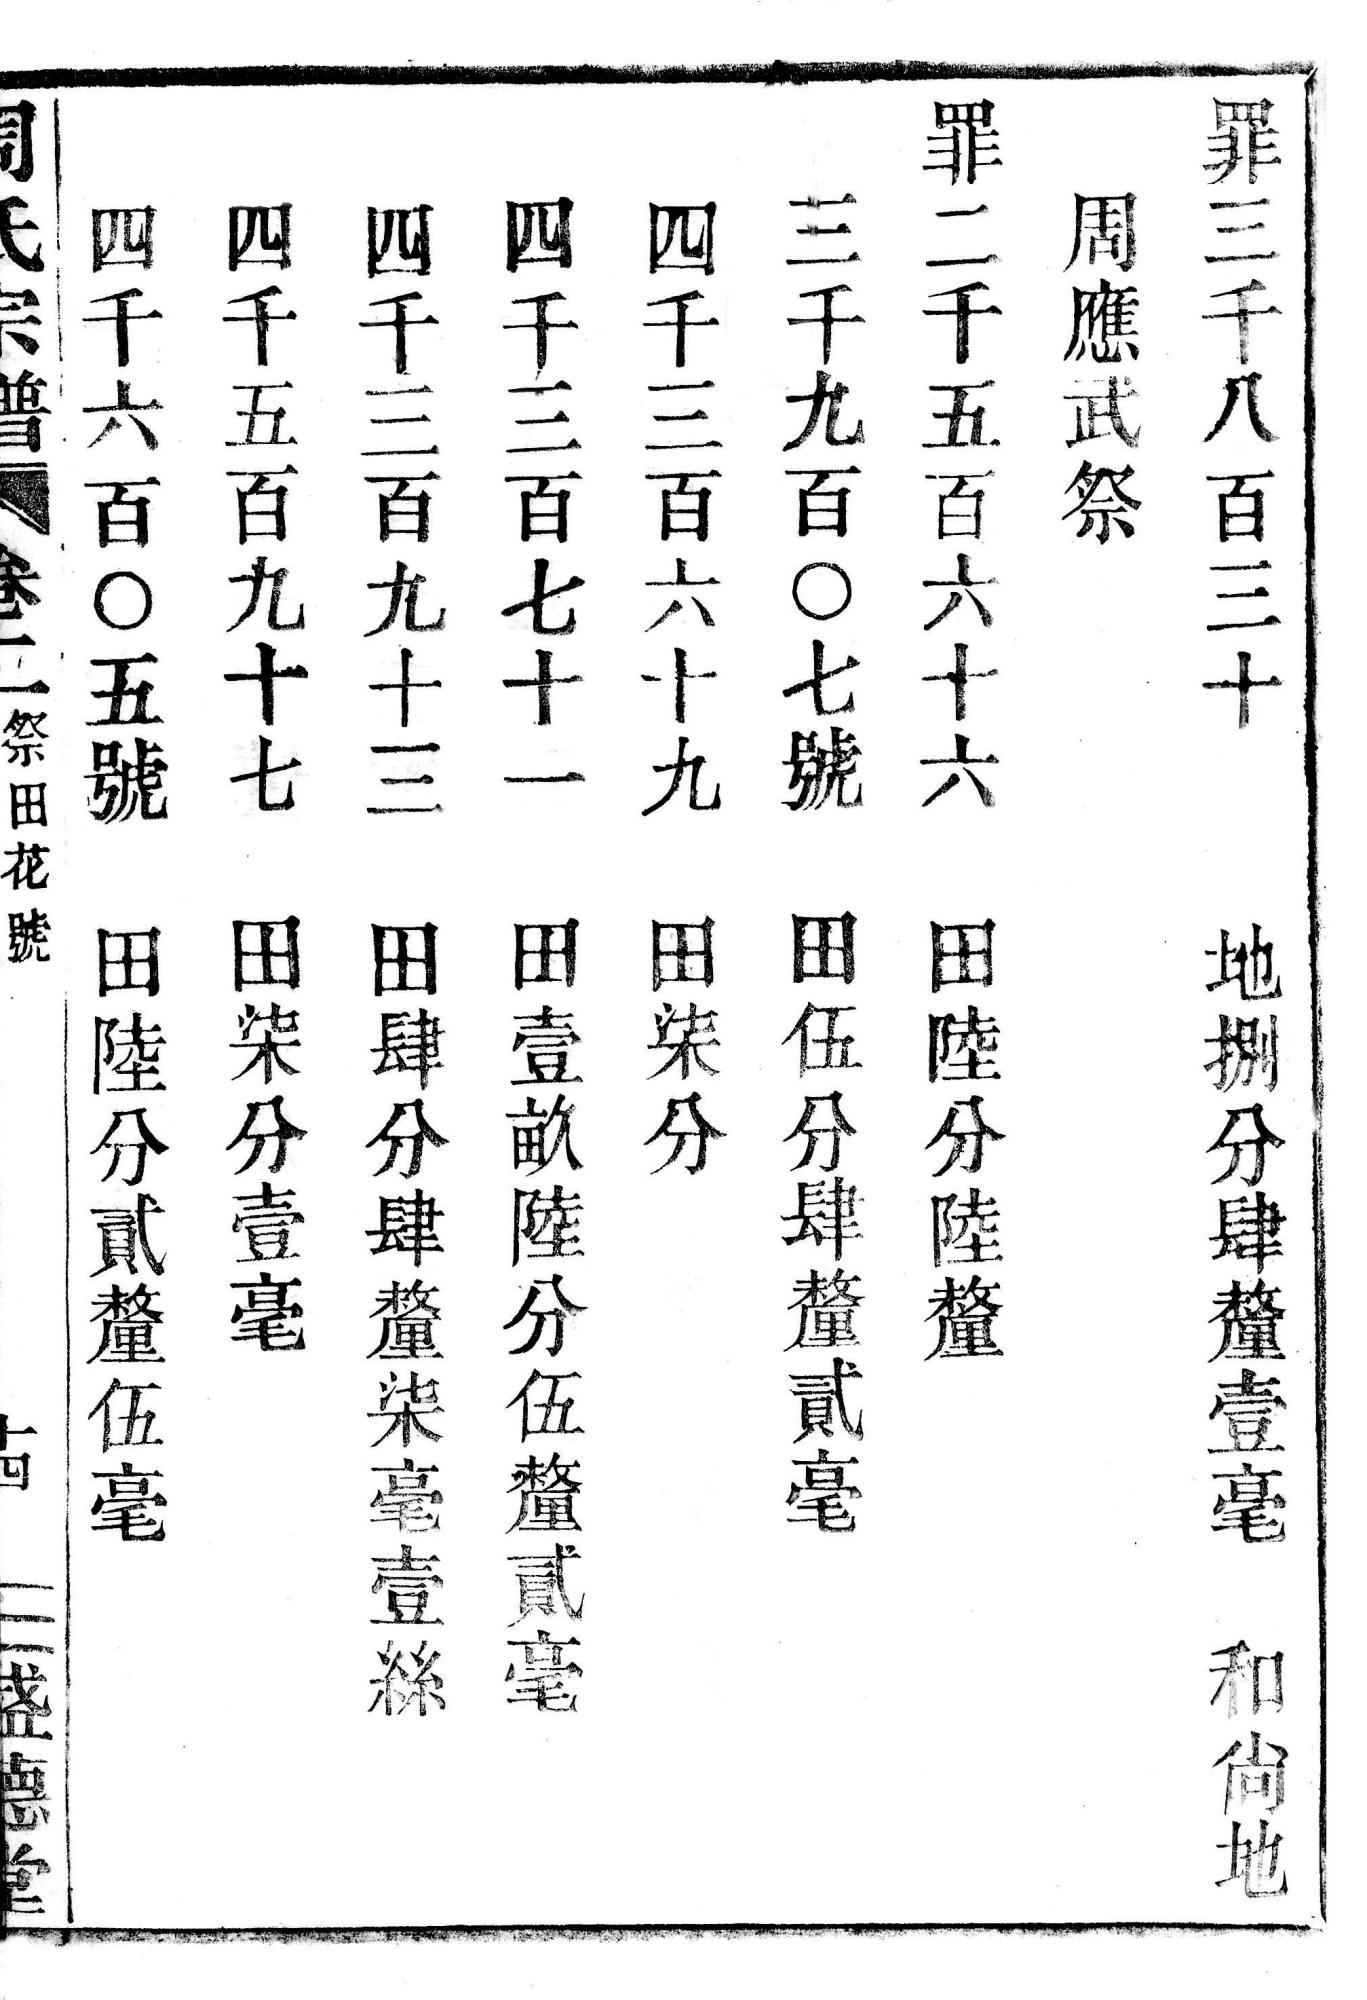 罪三千八百三十　地捌分肆釐壹毫　和尙地
周應武祭
罪二千五百六十六　田陸分陸釐
三千九百〇七號　田伍分肆釐貳毫
四千三百六十九　田柒分
四千三百七十一　田壹畝陸分伍釐貳毫
四千三百九十三　田肆分肆釐柒毫壹絲
四千五百九十七　田柒分壹毫
四千六百〇五號　田陸分貳釐伍毫
周氏宗譜　卷二　祭田花號　十四　三盛德堂